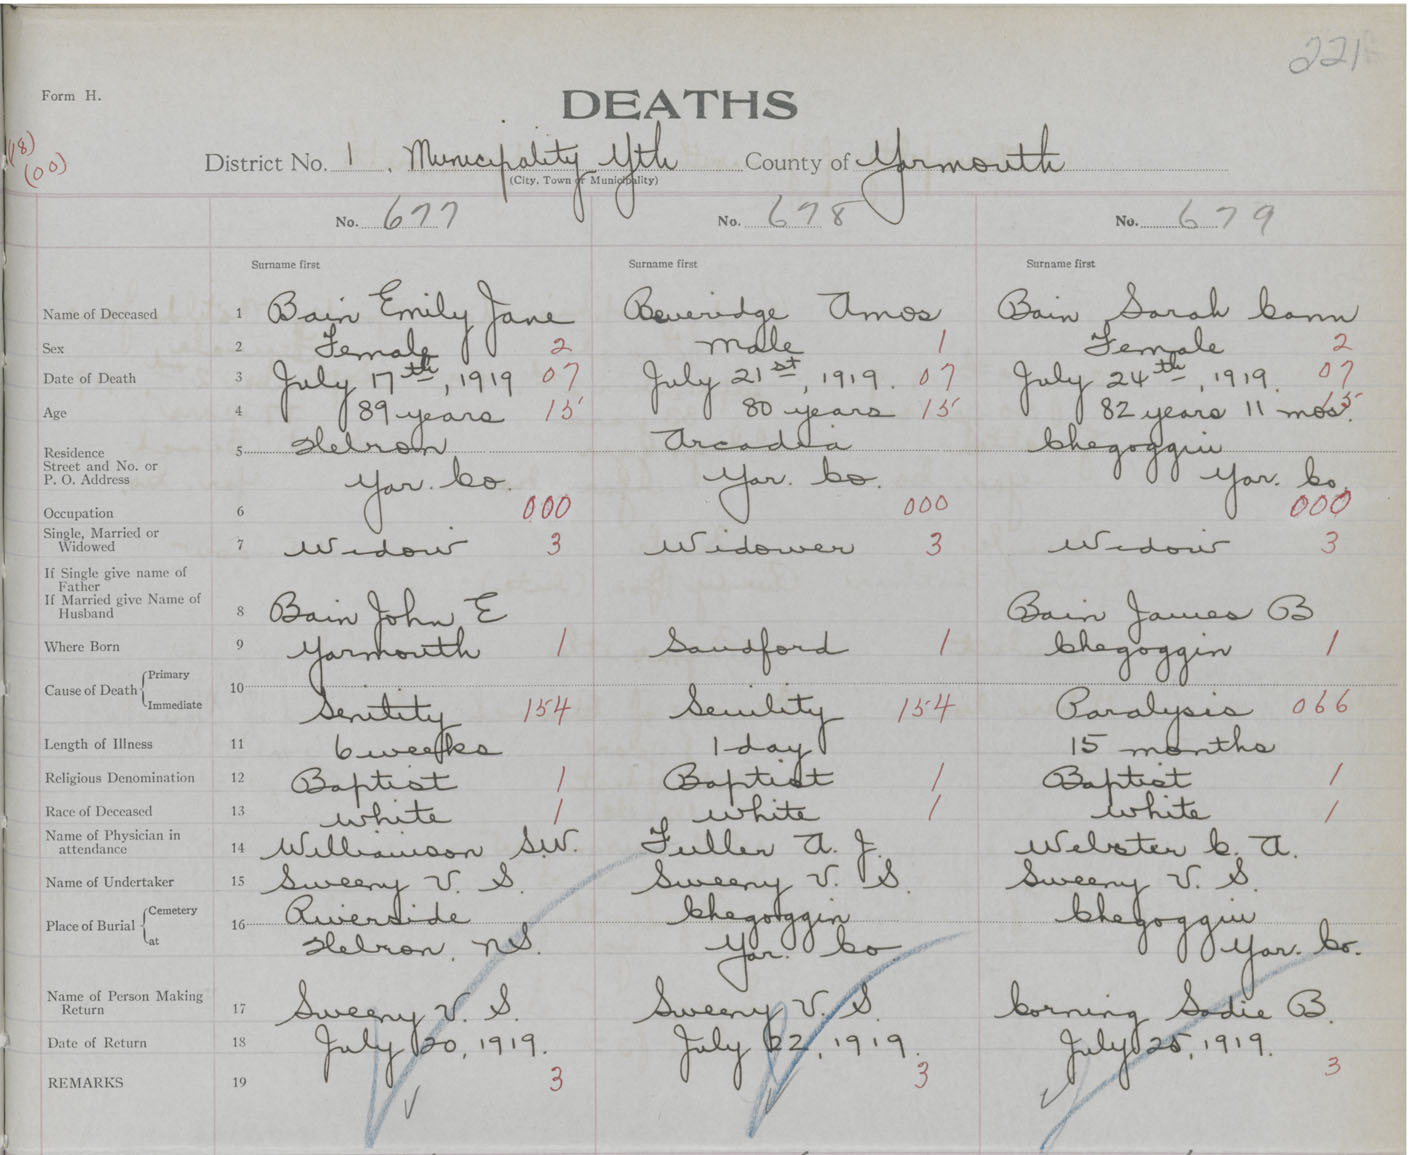 221
Form H.
DEATHS
(18)
(00)
District No. 1. Municipality Yth County of Yarmouth
(City, Town or Municipality)
No. 677 No. 678 No. 679
Surname first Surname first Surname first
Name of Deceased 1 Bain Emily Jane Beveridge Amos Bain Sarah Cann
Sex 2 Female 2 male 1 Female 2
Date of Death 3 July 17th, 1919 07 July 21st, 1919. 07 July 24th, 1919. 07
Age 4 89 years 15 80 years 15 82 years 11 mos. 15
Residence 5 Hebron Arcadia Chegoggin
Street and No. or
P. O. Address Yar. Co. Yar. Co. Yar. Co.
Occupation 6 000 000 000
Single, Married or
Widowed 7 Widow 3 Widower 3 Widow 3
If Single give name of
Father
If Married give Name of
Husband 8 Bain John E Bain James B
Where Born 9 Yarmouth 1 Sandford 1 Chegoggin 1
Cause of Death Primary 10
Immediate Senility 154 Senility 154 Paralysis 066
Length of Illness 11 6 weeks 1 day 15 months
Religious Denomination 12 Baptist 1 Baptist 1 Baptist 1
Race of Deceased 13 white 1 white 1 white 1
Name of Physician in
attendance 14 Williamson S.W. Fuller A. J. Webster C. A.
Name of Undertaker 15 Sweeny V. S. Sweeny V. S. Sweeny V. S.
Place of Burial Cemetery 16 Riverside Chegoggin Chegoggin
at Hebron, N.S. Yar. Co Yar. Co.
Name of Person Making
Return 17 Sweeny V. S. Sweeny V. S. Corning Sadie B.
Date of Return 18 July 20, 1919. July 22, 1919. July 25, 1919.
REMARKS 19 3 3 3